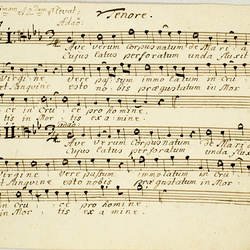 Tenore.
Adagio
I
Ave verum corpus natum de Mari a
Cujus latus perforatum unda fluxit
Virgine vere passum immo latum in cru
et Sanguine esto nobis praegustatum in Mor
ce in Cru ce pro homine
tis in Mor tis examine.
II
Ave verum Corpus natum de Mari
Cujus latus perforatum unda flux
Virgine Vere passum immolatum in cru
et Sanguine esto nobis Praegustatum in Mor
ce in Cru ce pro homine
tis in Mor tis examine.